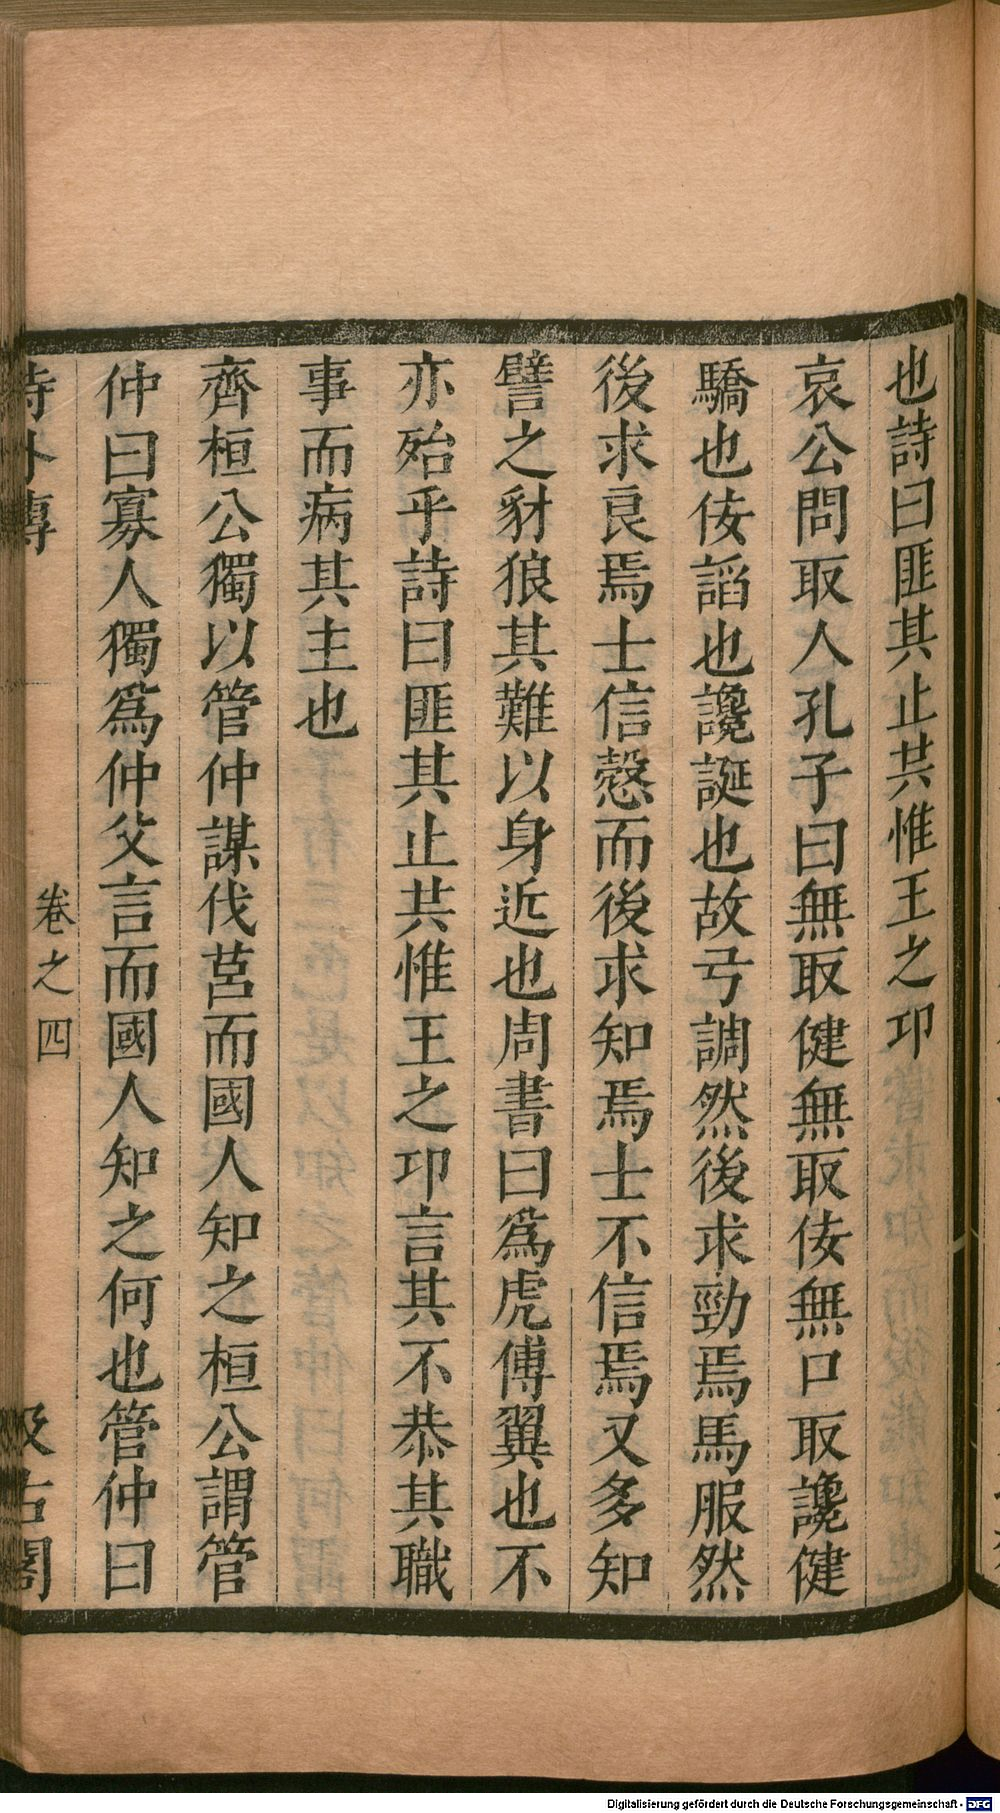 也詩曰匪其止共惟王之邛
哀公問取人孔子曰無取健無取佞無口取讒健
驕也佞謟也讒誕也故弓調然後求勁焉馬服然
後求良焉士信慤而後求知焉士不信焉又多知
譬之豺狼其難以身近也周書曰爲虎傅翼也不
亦殆乎詩曰匪其止共惟王之邛言其不恭其職
事而病其主也
齊桓公獨以管仲謀伐莒而國人知之桓公謂管
仲曰寡人獨爲仲父言而國人知之何也管仲曰
詩外傳
卷之四
汲古閣
Digitalisierung gefördert durch die Deutsche Forschungsgemeinschaft - DFG